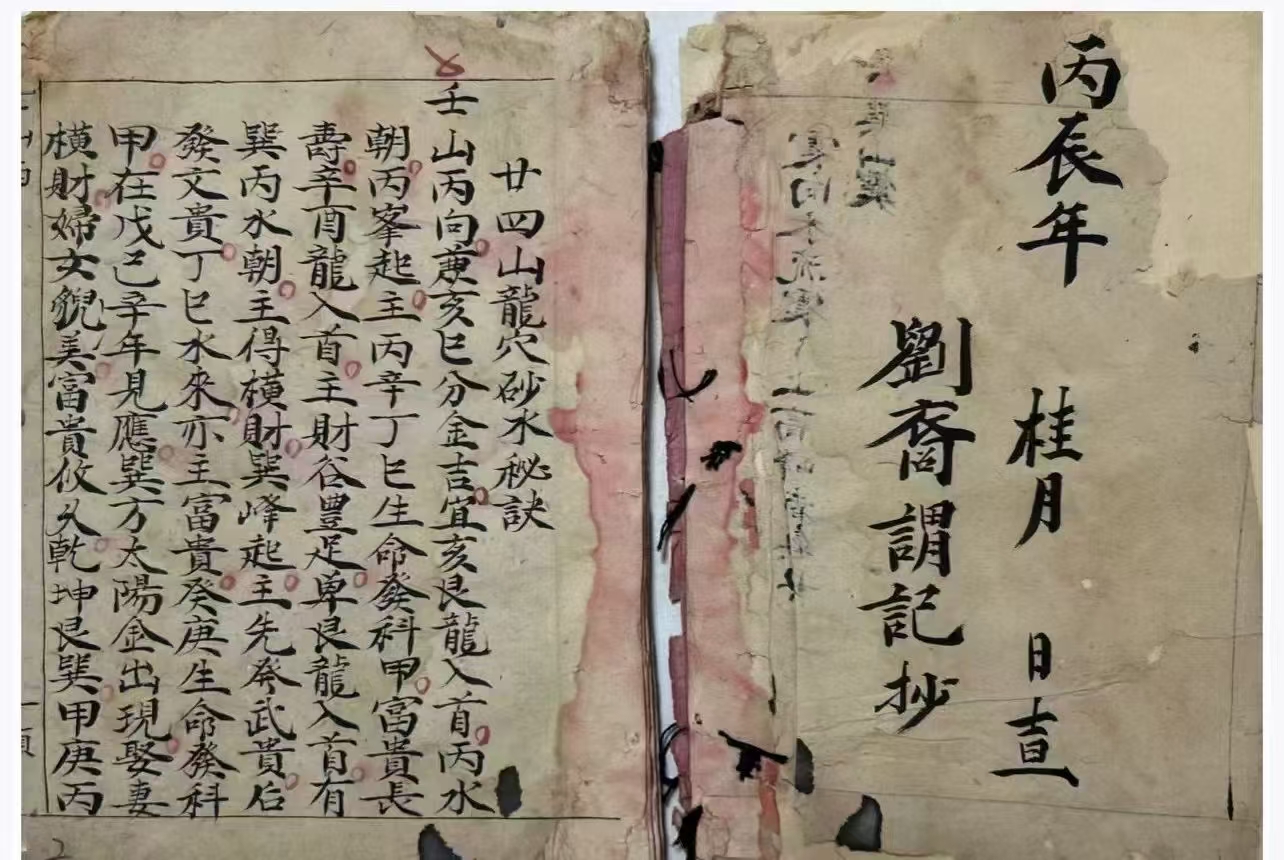 丙辰年 桂月 日立
劉裔謂記抄
廿四山龍穴砂水秘訣
壬山丙向兼亥巳分金吉宜亥艮龍入首丙水
朝丙峯起主丙辛丁巳生命發科甲富貴長
壽辛酉龍入首主財谷豊足单艮龍入首有
巽丙水朝主得橫財巽峰起主先發武貴后
發文貴丁巳水來亦主富貴癸庚生命發科
甲在戊己辛年見應巽方太陽金出現娶妻
橫財婦女貌美富貴攸久乾坤艮巽甲庚丙